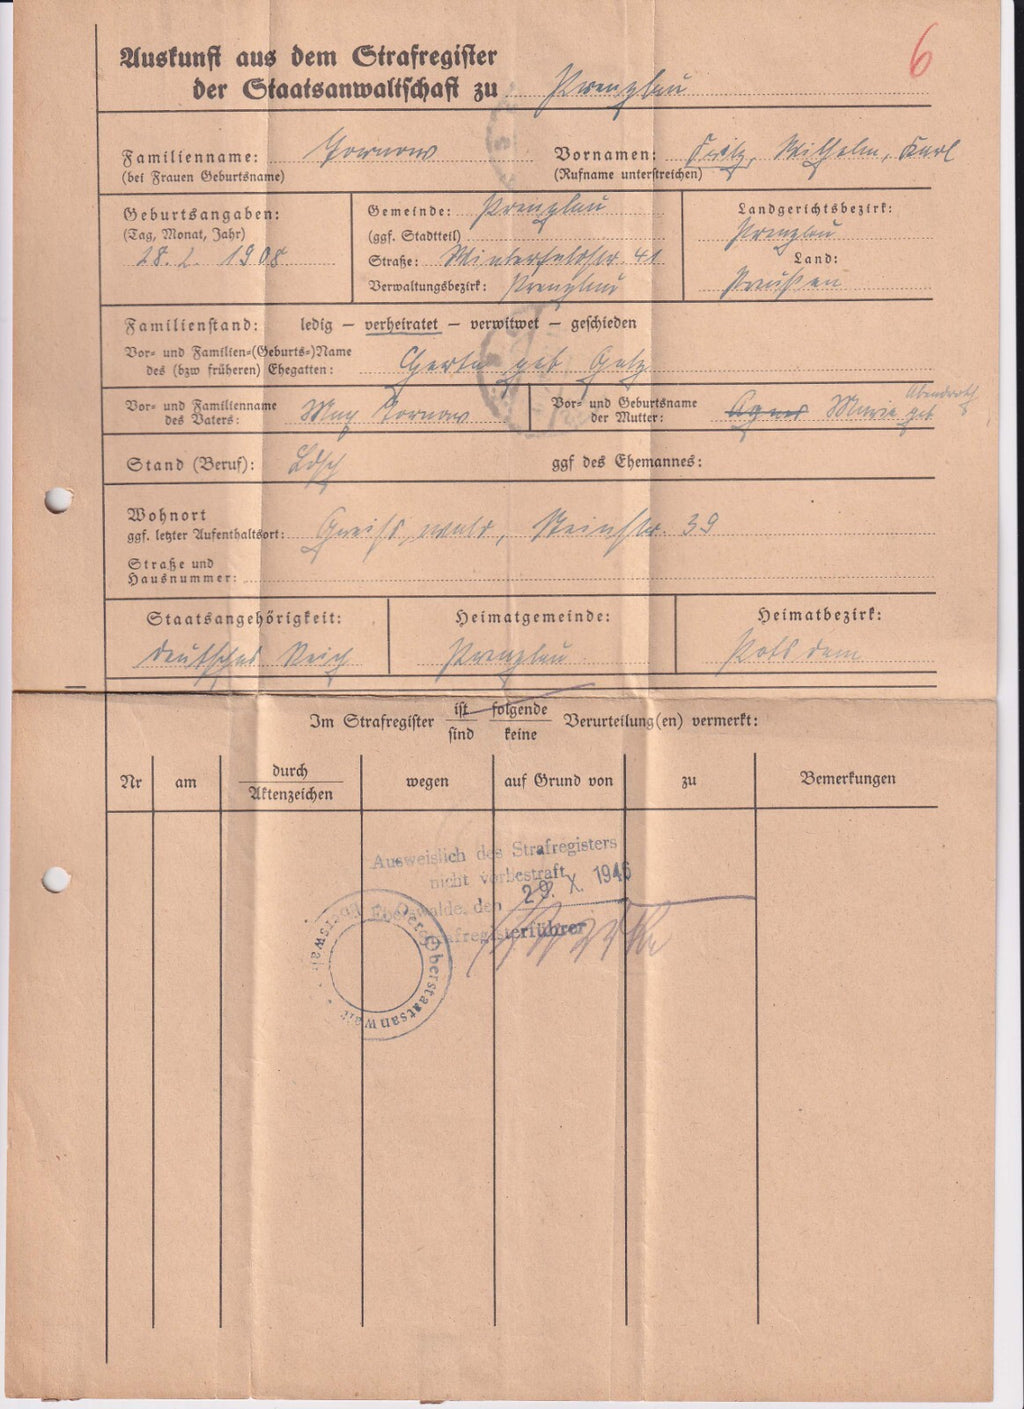 6
Auskunft aus dem Strafregister
der Staatsanwaltschaft zu Prenzlau
Familienname: Tornow Vornamen: Fritz, Wilhelm, Karl
(bei Frauen Geburtsname) (Rufname unterstreichen)
Geburtsangaben: Gemeinde: Prenzlau Landgerichtsbezirk:
(Tag, Monat, Jahr) (ggf. Stadtteil) Prenzlau
28. 2. 1908 Straße: Winterfeldtstr. 41 Land:
Verwaltungsbezirk: Prenzlau Preußen
Familienstand: ledig – verheiratet – verwitwet – geschieden
Vor- und Familien-(Geburts-)Name
des (bzw früheren) Ehegatten: geb
Vor- und Familienname Vor- und Geburtsname Abendroth
des Vaters: Max Tornow der Mutter: Agnes Marie geb
Stand (Beruf): ggf des Ehemannes:
Wohnort
ggf. letzter Aufenthaltsort: Greifswald, Steinstr. 39
Straße und
Hausnummer:
Staatsangehörigkeit: Heimatgemeinde: Heimatbezirk:
Deutsches Reich Prenzlau Potsdam
Im Strafregister ist folgende Verurteilung(en) vermerkt:
sind keine
Nr am durch wegen auf Grund von zu Bemerkungen
Aktenzeichen
Ausweislich des Strafregisters
nicht vorbestraft
Eberswalde, den 29. X. 1946
Strafregisterführer
Oberstaatsanwalt